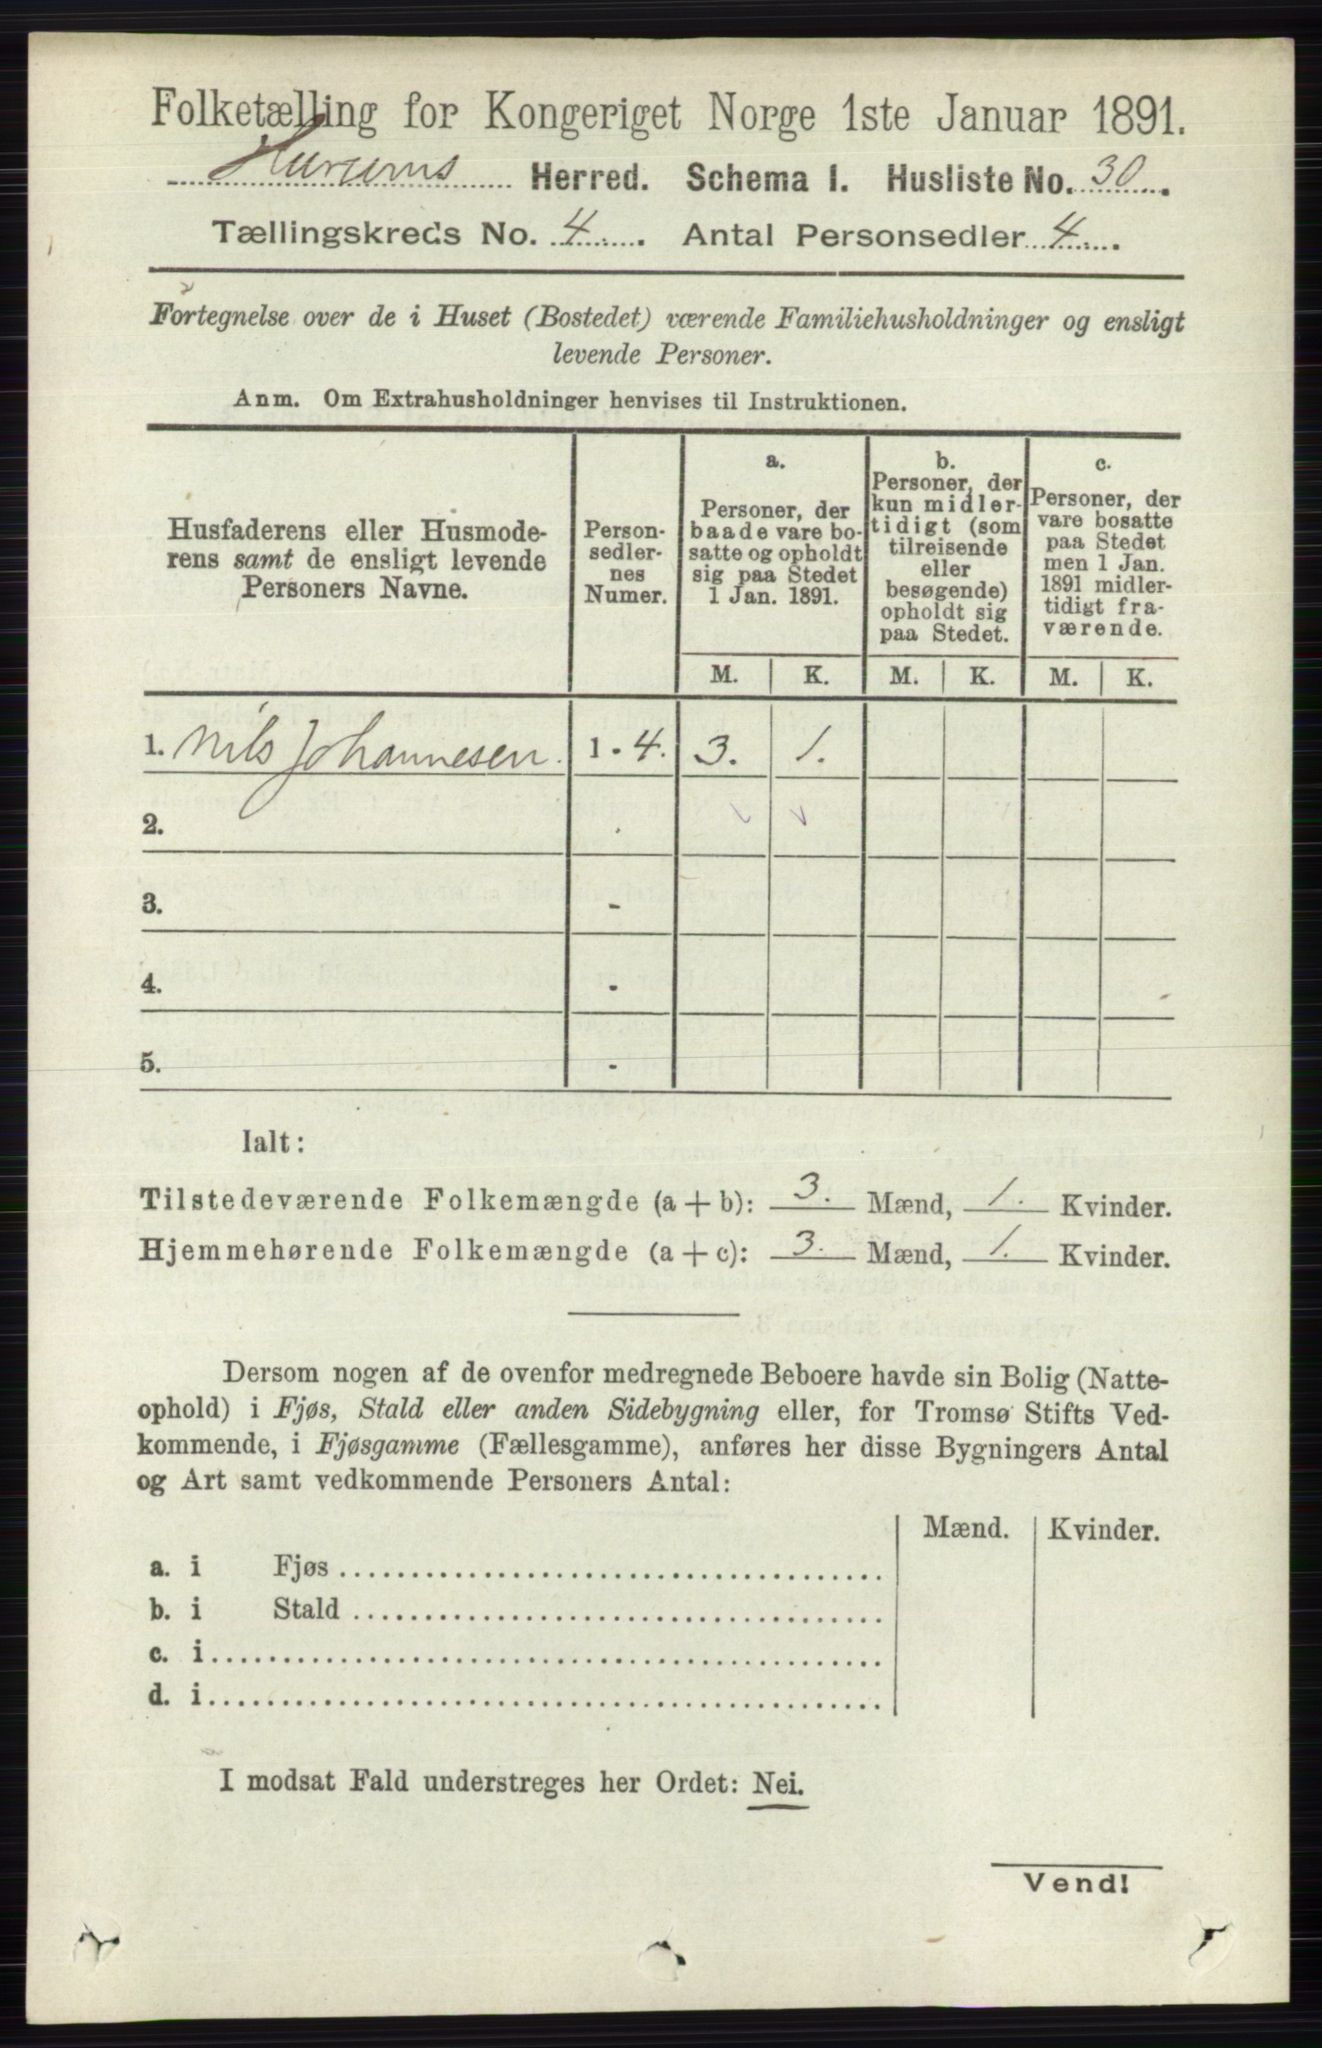 Folketælling for Kongeriget Norge 1ste Januar 1891.
Hurums Herred. Schema I. Husliste No. 30.
Tællingskreds No. 4. Antal Personsedler 4.
Fortegnelse over de i Huset (Bostedet) værende Familiehusholdninger og ensligt
levende Personer.
Anm. Om Extrahusholdninger henvises til Instruktionen.
Husfaderens eller Husmode-
rens samt de ensligt levende
Personers Navne.
Person-
sedler-
nes
Numer.
a.
Personer, der
baade vare bo-
satte og opholdt
sig paa Stedet
1 Jan. 1891.
b.
Personer, der
kun midler-
tidigt (som
tilreisende
eller
besøgende)
opholdt sig
paa Stedet.
c.
Personer, der
vare bosatte
paa Stedet
men 1 Jan.
1891 midler-
tidigt fra-
værende.
M. K. M. K. M. K.
1. Nils Johannesen. 1 - 4. 3. 1.
2. -
3. -
4. -
5. -
Ialt:
Tilstedeværende Folkemængde (a + b): 3. Mænd, 1. Kvinder.
Hjemmehørende Folkemængde (a + c): 3. Mænd, 1. Kvinder.
Dersom nogen af de ovenfor medregnede Beboere havde sin Bolig (Natte-
ophold) i Fjøs, Stald eller anden Sidebygning eller, for Tromsø Stifts Ved-
kommende, i Fjøsgamme (Fællesgamme), anføres her disse Bygningers Antal
og Art samt vedkommende Personers Antal:
Mænd. Kvinder.
a. i Fjøs
b. i Stald
c. i
d. i
I modsat Fald understreges her Ordet: Nei.
Vend!